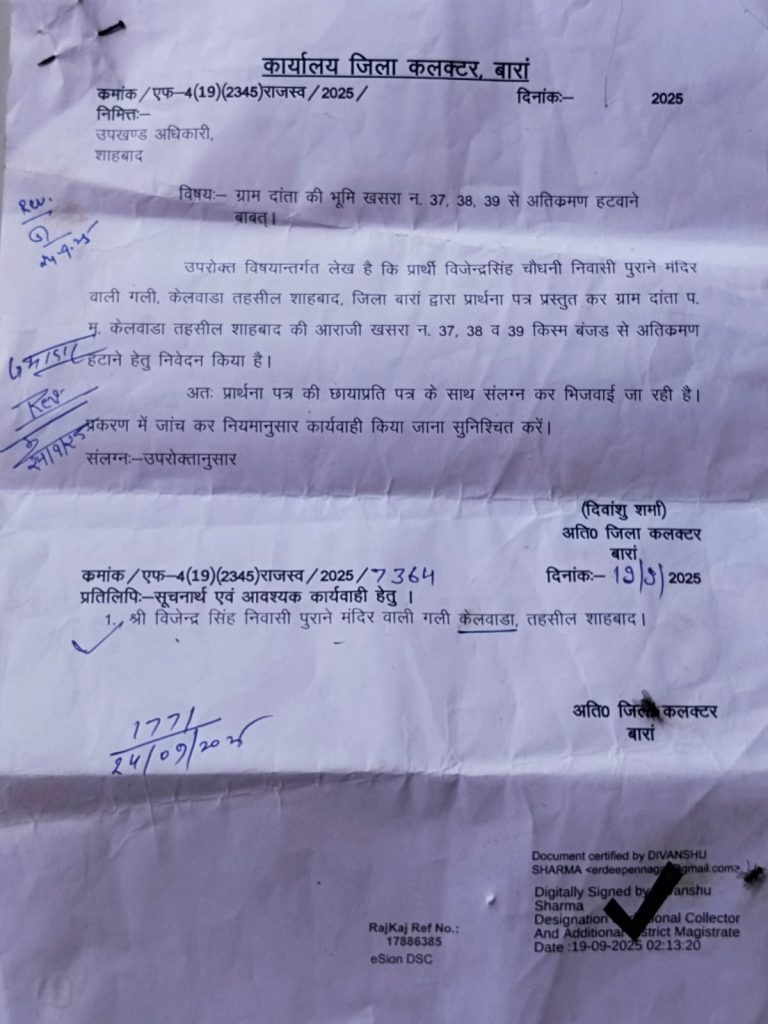 कार्यालय जिला कलक्टर, बारां
कमांक/एफ–4(19)(2345)राजस्व/2025/ दिनांकः– 2025
निमित्तः–
उपखण्ड अधिकारी,
शाहबाद
विषयः– ग्राम दांता की भूमि खसरा न. 37, 38, 39 से अतिकमण हटवाने
बाबत्।
Rev.
24-9-25
उपरोक्त विषयान्तर्गत लेख है कि प्रार्थी विजेन्द्रसिंह चौधनी निवासी पुराने मंदिर
वाली गली, केलवाडा तहसील शाहबाद, जिला बारां द्वारा प्रार्थना पत्र प्रस्तुत कर ग्राम दांता प.
म. केलवाडा तहसील शाहबाद की आराजी खसरा न. 37, 38 व 39 किस्म बंजड से अतिकमण
हटाने हेतु निवेदन किया है।
अतः प्रार्थना पत्र की छायाप्रति पत्र के साथ संलग्न कर भिजवाई जा रही है।
Rev
प्रकरण में जांच कर नियमानुसार कार्यवाही किया जाना सुनिश्चित करें।
24/9/25
संलग्नः–उपरोक्तानुसार
(दिवांशु शर्मा)
अति0 जिला कलक्टर
बारां
कमांक/एफ–4(19)(2345)राजस्व/2025/7364 दिनांकः– 19/9/2025
प्रतिलिपिः–सूचनार्थ एवं आवश्यक कार्यवाही हेतु ।
1. श्री विजेन्द्र सिंह निवासी पुराने मंदिर वाली गली केलवाडा, तहसील शाहबाद।
अति0 जिला कलक्टर
बारां
1771
24/09/2025
Document certified by DIVANSHU
SHARMA <erdeepennaga@gmail.com>
Digitally Signed by Divanshu
Sharma
Designation Additional Collector
And Additional District Magistrate
Date :19-09-2025 02:13:20
RajKaj Ref No.:
17886385
eSign DSC